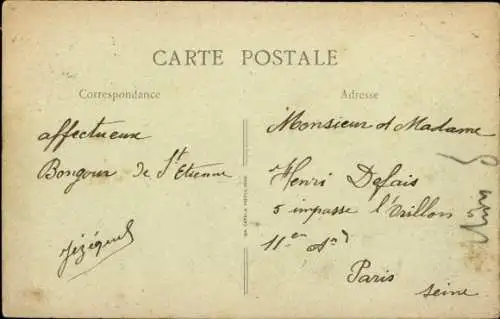 CARTE POSTALE
Correspondance
Adresse
affectueux
Bongour de St Etienne
Jézéquel
Monsieur et Madame
Henri Defais
5 impasse l'Orillon
11en Ard
Paris
Seine